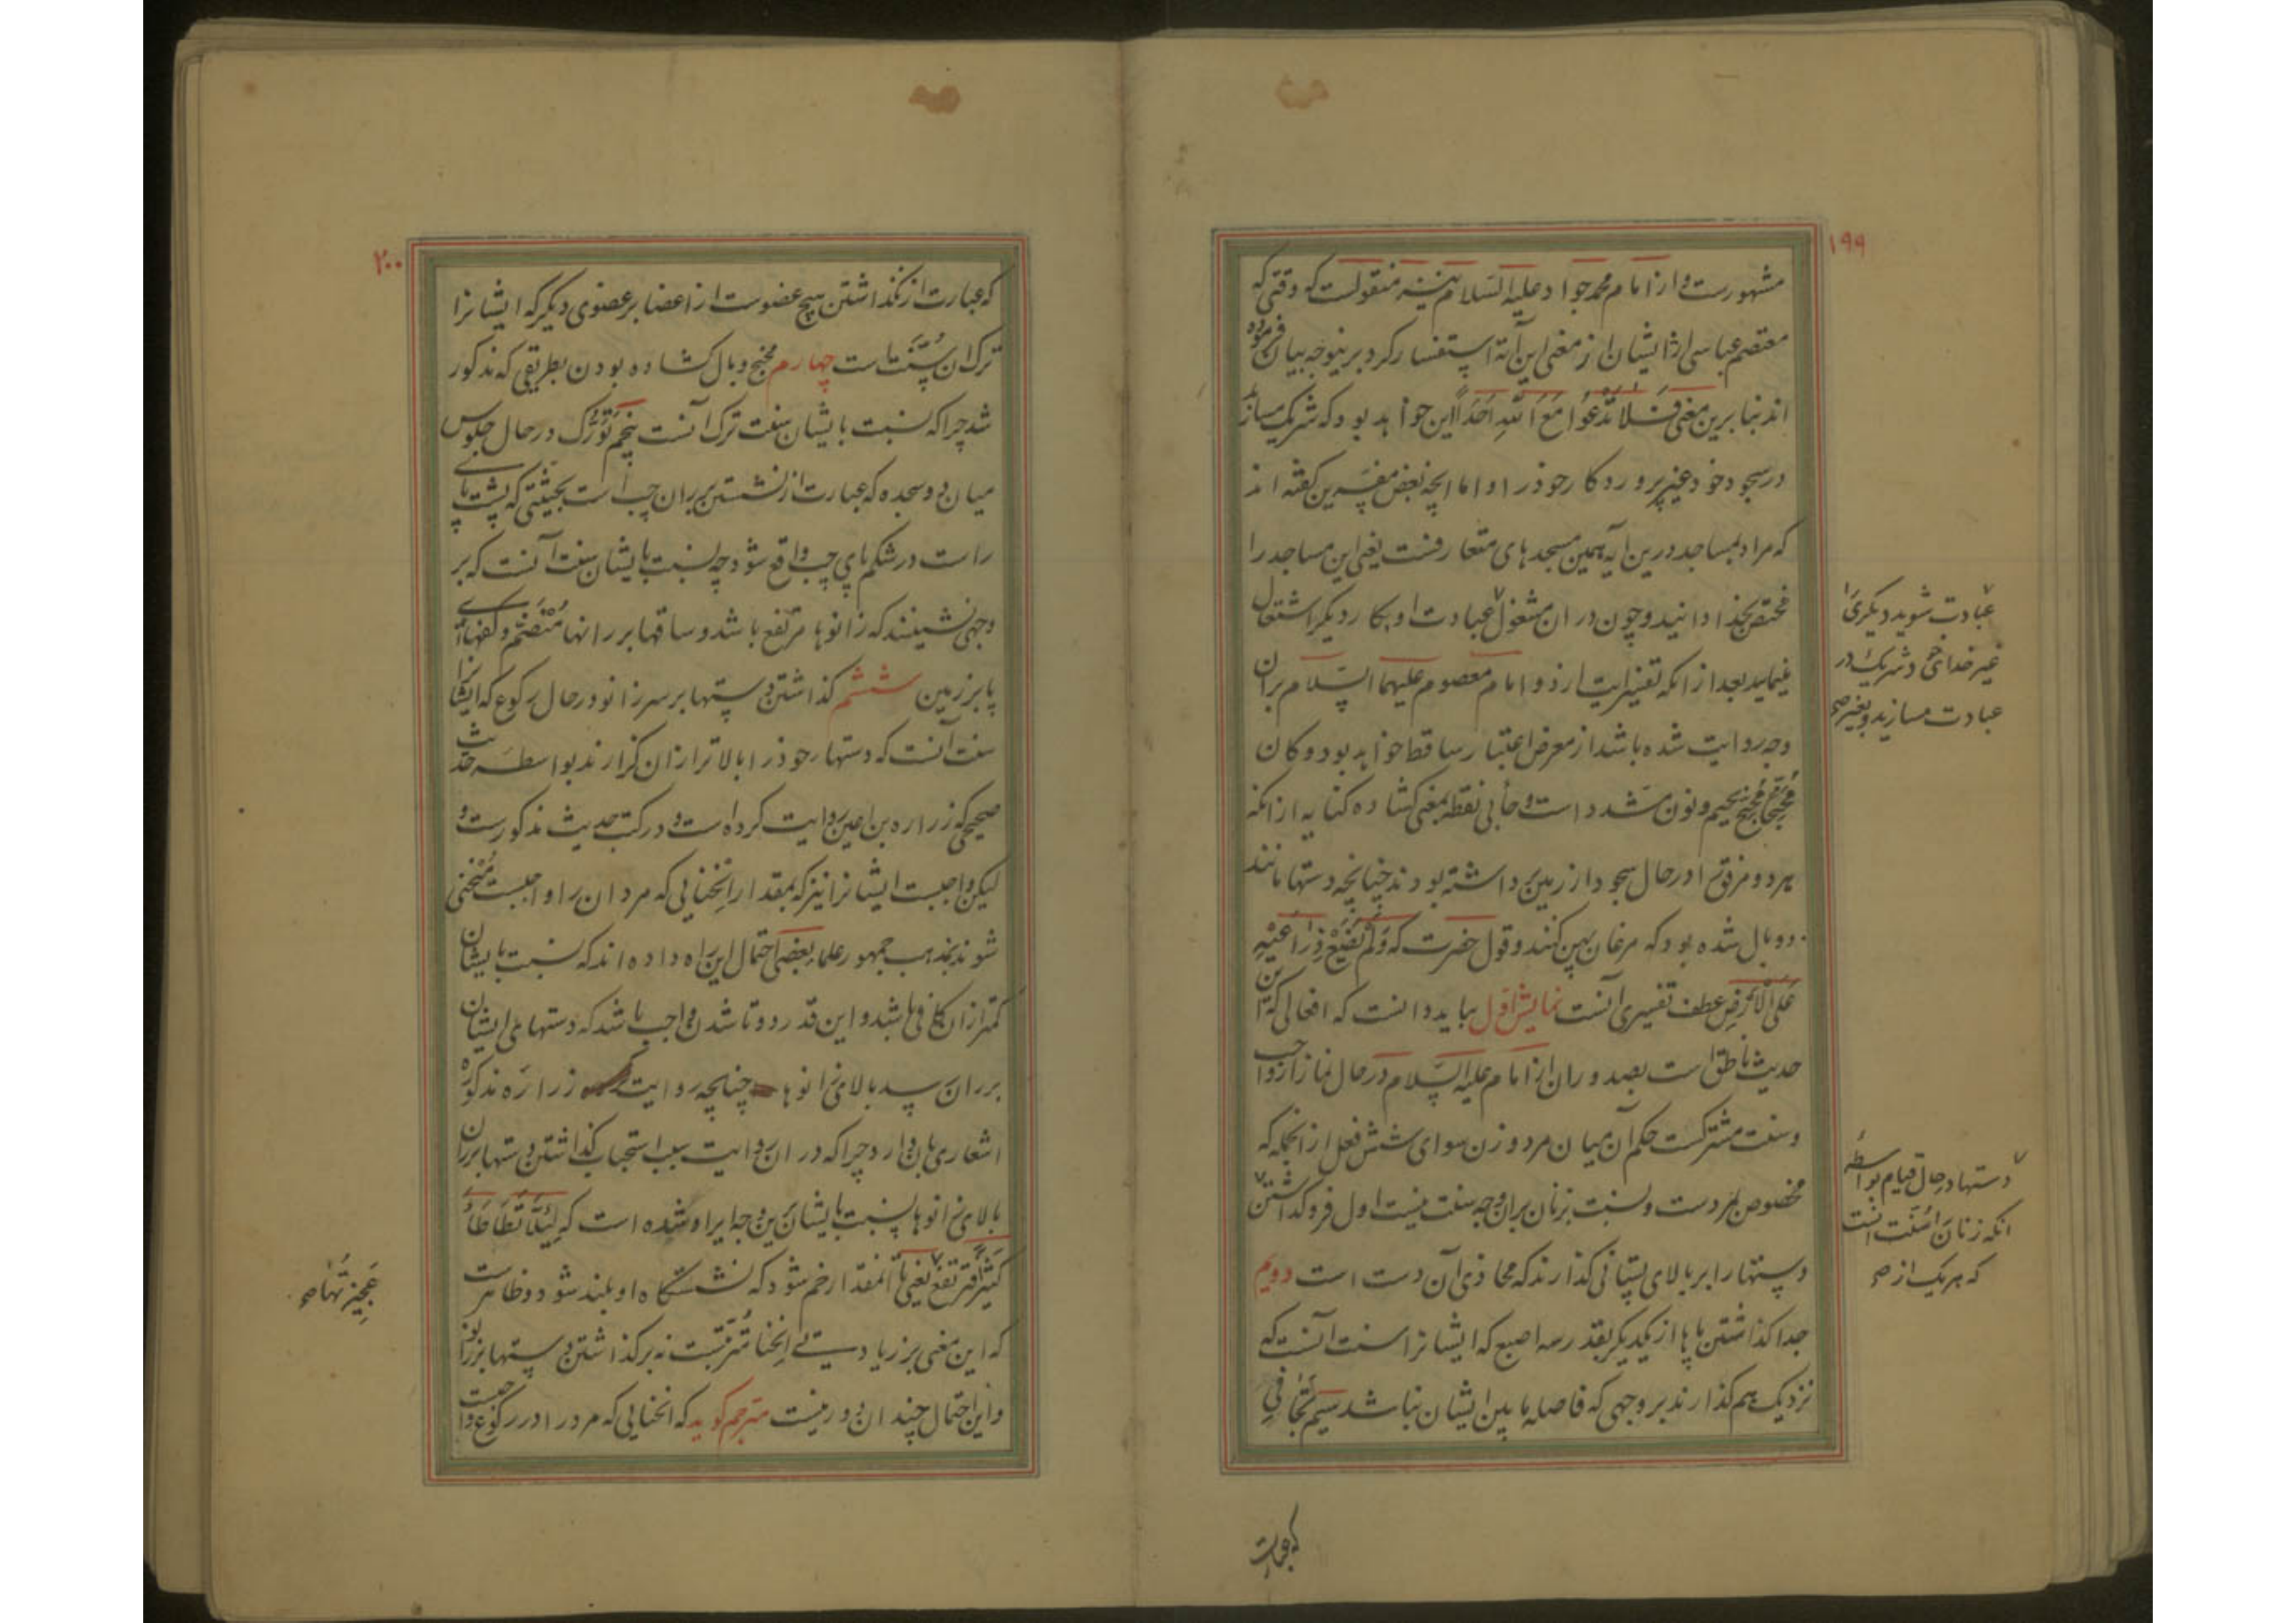 ۱۹۹
مشهورست و از امام محمد جواد علیه السلام نیز منقولست که وقتی که
معتصم عباسی از ایشان از معنی این آیه استفسار کرد برینوجه بیان فرموده
اند بنابرین معنی فَلَا تَدْعُوا مَعَ اللّهِ اَحَدًا این خواهد بود که شریک مسازید
در سجود خود غیر پروردکار خود را و اما انچه بعض مفسرین کفته اند
که مراد بمساجد درین آیه همین مسجدهای متعارفست یعنی این مساجد را
مختص بخدا دانید و چون در ان مشغول بعبادت او بکار دیگر اشتغال
عبادت شوید دیکری را
غیر خدای خود شریک در
عبادت مسازید و بغیر صح
ننمایید بعد از انکه تفسیر ایت از دو امام معصوم علیهما السلام بران
وجه روایت شده باشد از معرض اعتبار ساقط خواهد بود و کان
مُجَنِّحًا مُجَنِّح بجیم و نون مشدد است و حاء بی نقطه بمعنی کشاده کنایه از انکه
هر دو مرفق را در حال سجود از زمین داشته بودند چنانچه دستها مانند
دو بال شده بود که مرغان پهن کنند و قول حضرت که وَلَمْ یَضَعْ ذِرَاعَیْهِ
عَلَی الْاَرْضِ عطف تفسیری آنست نمایش اول بباید دانست که افعالی که این
حدیث ناطق است بصدور ان از امام علیه السلام در حال نماز از واجب
و سنت مشترکست حکم آن میان مرد و زن سوای شش فعل از انجمله که
مخصوص بمردست و نسبت بزنان بران وجه سنت نیست اول فرو کذاشتن
دستها در حال قیام بواسطه
انکه زنان را سنت انست
که هر یک از صح
دستها را بر بالای پستانی کذارند که محاذی آن دست است دویم
جدا کذاشتن پاها از یکدیکر بقدر سه اصبع که ایشانرا سنت آنست که
نزدیک بهم کذارند بر وجهی که فاصله مابین ایشان نباشد سیم تَجَافِی
۲۰۰
که عبارت از نکذاشتن هیچ عضوست از اعضا بر عضوی دیگر که ایشانرا
ترک ان سُنّت است چهارم مجنح و بال کشاده بودن بطریقی که مذکور
شد چرا که نسبت بایشان سنت ترک آنست پنجم تَوَرُّک در حال جلوس
میان دو سجده که عبارت از نشستن بر ران چپ است بحیثیتی که پشت پای
راست در شکم پای چپ واقع شود چه نسبت بایشان سنت آنست که بر
وجهی نشینند که زانوها مرتفع باشد و ساقها بر رانها مُنْضَم و کفهای
پا بر زمین ششم کذاشتن دستها بر سر زانو در حال رکوع که ایشانرا
سنت آنست که دستها خود را بالاتر از ان کزارند بواسطه حدیث
صحیحی که زراره بن اعین روایت کرده است و در کتب حدیث مذکورست و
لیکن واجبست ایشانرا نیز که بمقدار انحنایی که مردان را واجبست منحنی
شوند بمذهب جمهور علما و بعضی احتمال این راه داده اند که نسبت بایشان
کمتر از ان کافی باشد و این قدر دوتا شدن واجب باشد که دستهای ایشان
بر ران رسد بالای زانوها چنانچه روایت زراره مذکوره
اشعاری بان دارد چرا که در ان روایت سبب استحباب کذاشتن دستها بر ران
بالای زانوها نسبت بایشان برین وجه ایراد شده است که لِئَلَّا تَطَأطَأ
کَثِیرًا فَتَرْتَفِعَ یعنی تا آنمقدار خم شود که نشستکاه او بلند شود و ظاهرست
عَجِیزَتُهَا صح
که این معنی بر زیادتی انحنا مُترتبست نه بر کذاشتن دستها بر زانو
و این احتمال چندان دور نیست مترجم کوید که انحنایی که مرد را در رکوع واجبست